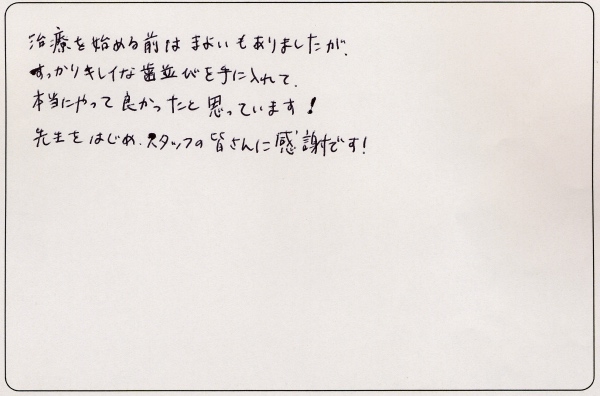 治療を始める前はまよいもありましたが、
すっかりキレイな歯並びを手に入れて、
本当にやって良かったと思っています！
先生をはじめ、スタッフの皆さんに感謝です！